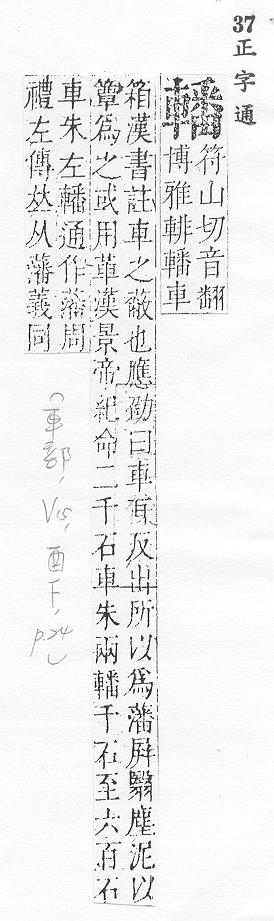 37正字通
轓
符山切音翻
博雅輫轓車
箱漢書註車之蔽也應劭曰車耳反出所以爲藩屏翳塵泥以
簟爲之或用革漢景帝紀命二千石車朱兩轓千石至六百石
車朱左轓通作藩周
禮左傳𠀤从藩義同
(車部, V15, 酉下, p.24)